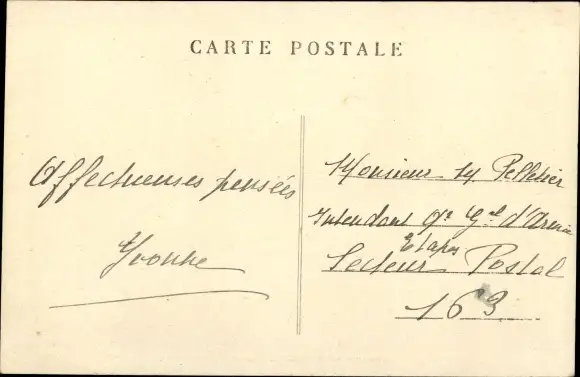 CARTE POSTALE
Affectueuses pensées
Yvonne
Monsieur M Pelletier
Intendant Qr Gal d'Armée
Etapes
Secteur Postal
163